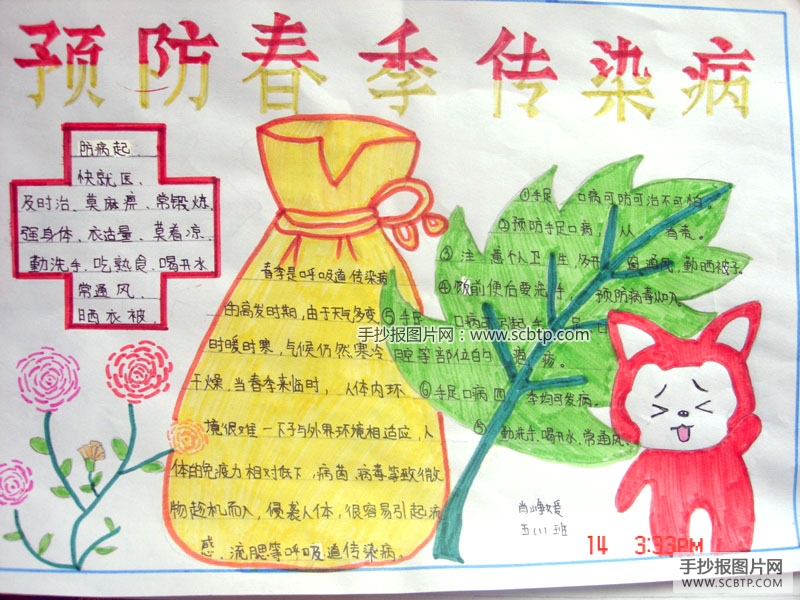 预防春季传染病
防病起、
快就医、
及时治、莫麻痹、常锻炼、
强身体、衣适量、莫着凉、
勤洗手、吃熟食、喝开水
常通风、
晒衣被、
春季是呼吸道传染病
的高发时期,由于天气多变
时暖时寒,气候仍然寒冷
干燥,当春季来临时,人体内环
境很难一下子与外界环境相适应,人
体的免疫力相对低下,病菌、病毒等致微
物趁机而入,侵袭人体,很容易引起流
感、流腮等呼吸道传染病。
①手足口病可防可治不可怕。
②预防手足口病,从
③注意个人卫生,通风,勤晒被子。
④饭前便后要洗手,预防病毒
⑤手足口病可引起手、足、口
腔等部位的
⑥手足口病四季均可发病。
勤洗手、喝开水、常通风。
五(1)班
14 3:33PM
手抄报图片网:www.scbtp.com
手抄报图片网
WWW.SCBTP.COM